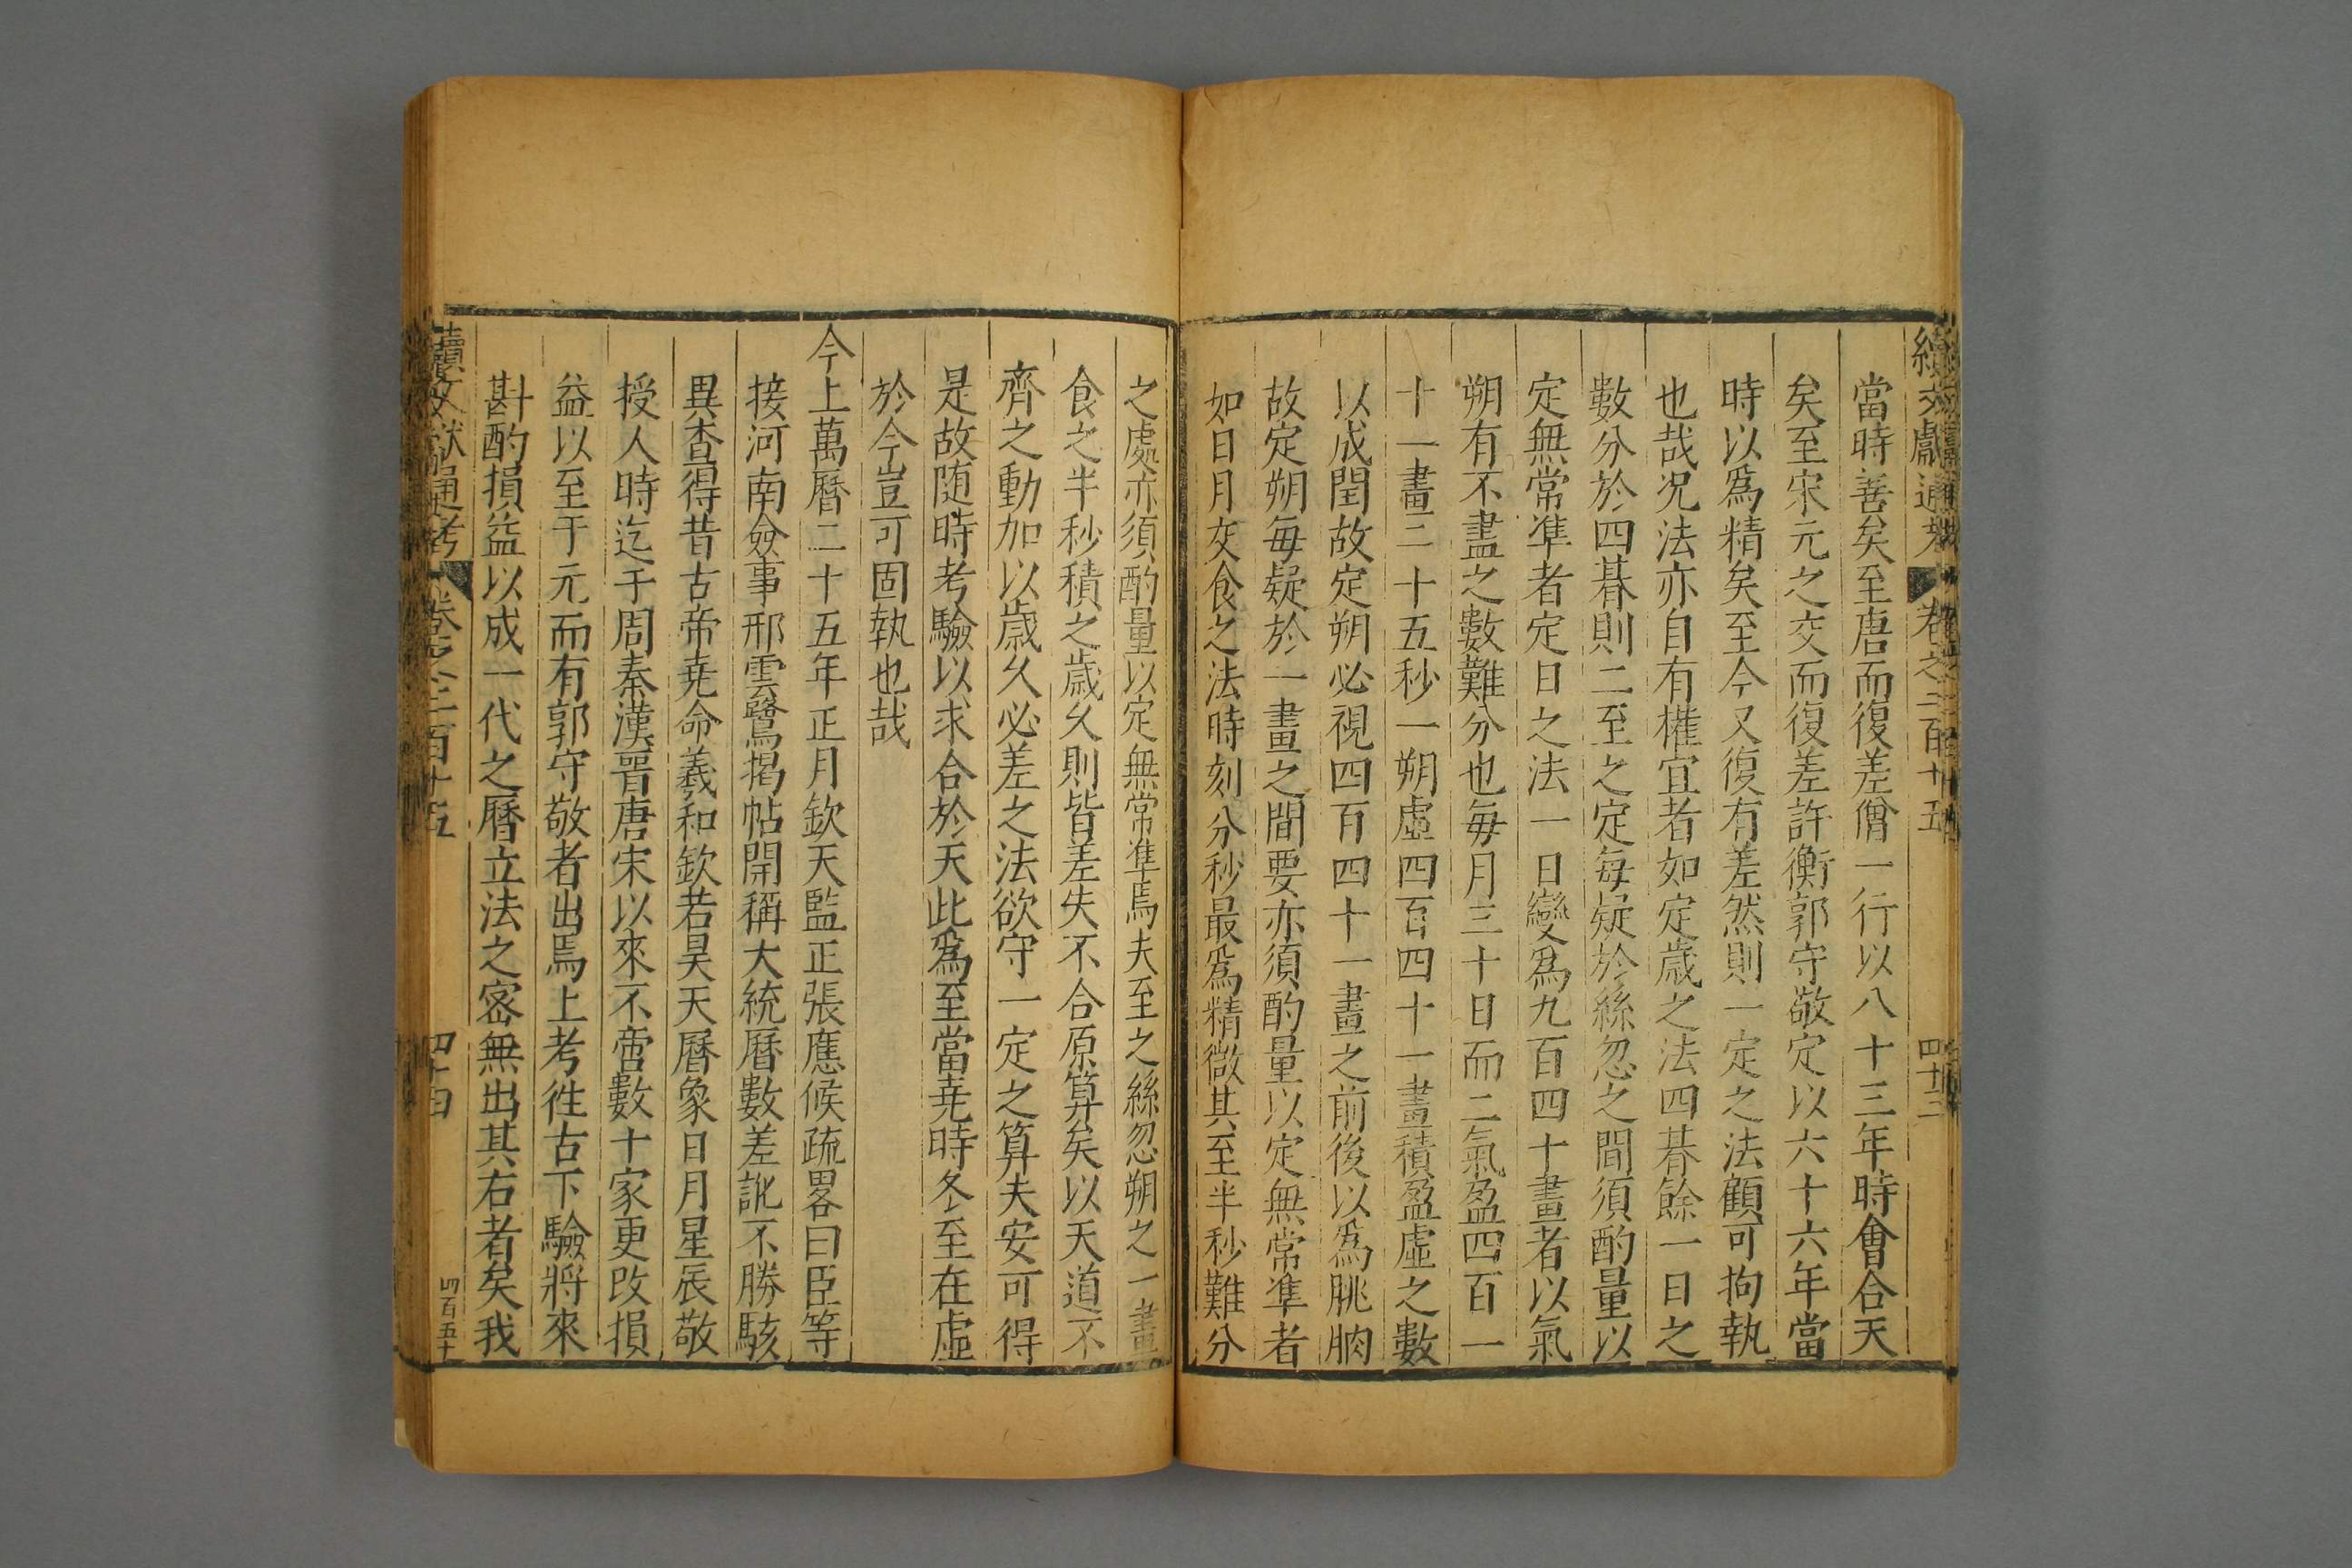 續文獻通考 卷之二百十五 四十三
當時善矣至唐而復差僧一行以八十三年時會合天
矣至宋元之交而復差許衡郭守敬定以六十六年當
時以爲精矣至今又復有差然則一定之法顧可拘執
也哉况法亦自有權宜者如定歲之法四朞餘一日之
數分於四朞則二至之定每疑於絲忽之間須酌量以
定無常準者定日之法一日變爲九百四十畫者以氣
朔有不盡之數難分也每月三十日而二氣盈四百一
十一畫二十五秒一朔虛四百四十一畫積盈虛之數
以成閏故定朔必視四百四十一畫之前後以爲朓朒
故定朔每疑於一畫之間要亦須酌量以定無常準者
如日月交食之法時刻分秒最爲精微其至半秒難分
之處亦須酌量以定無常準焉夫至之絲忽朔之一畫
食之半秒積之歲久則皆差失不合原算矣以天道不
齊之動加以歲久必差之法欲守一定之算夫安可得
是故随時考驗以求合於天此爲至當堯時冬至在虛
於今豈可固執也哉
今上萬曆二十五年正月欽天監正張應候疏畧曰臣等
接河南僉事邢雲鷺揭帖開稱大統曆數差訛不勝駭
異查得昔古帝堯命羲和欽若昊天曆象日月星辰敬
授人時迄于周秦漢晋唐宋以來不啻數十家更改損
益以至于元而有郭守敬者出焉上考徃古下驗將來
斟酌損益以成一代之曆立法之宻無出其右者矣我
續文獻通考 卷之二百十五 四十四 四百五十